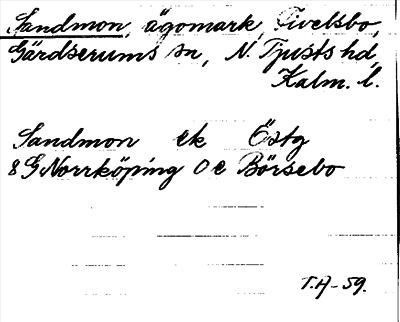 Sandmon, ägomark, Fivelsbo,
Gärdserums sn, N. Tjusts hd,
Kalm. l.
Sandmon ek Östg
8 G Norrköping 0 e Börsebo
T.A-59.